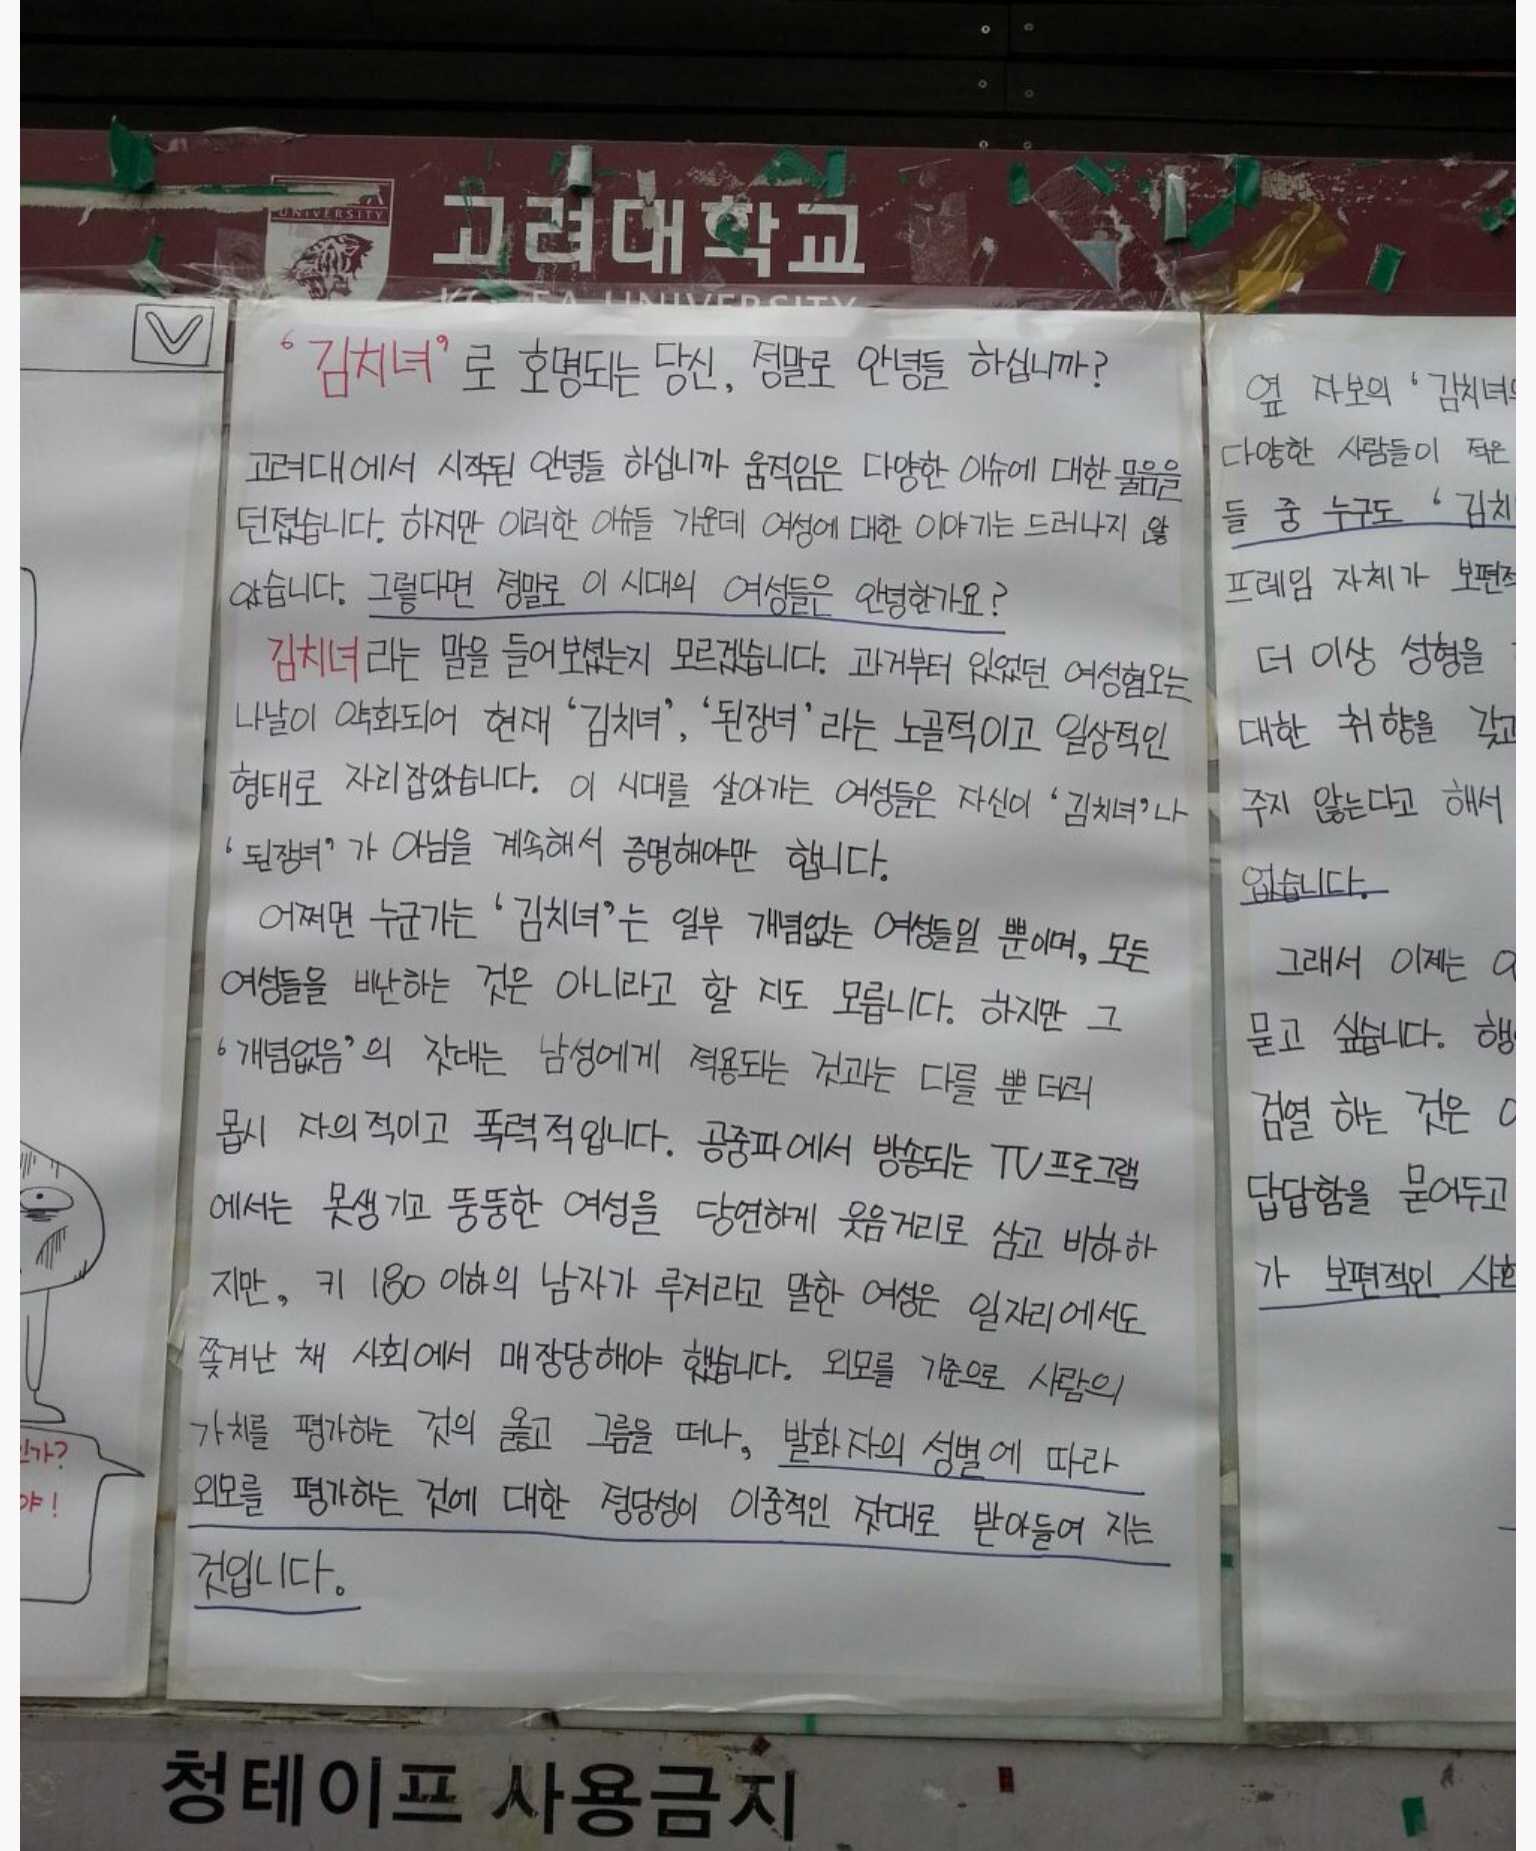 UNIVERSITY
고려대학교
KOREA UNIVERSITY
'김치녀'로 호명되는 당신, 정말로 안녕들 하십니까?
고려대에서 시작된 안녕들 하십니까 움직임은 다양한 이슈에 대한 물음을
던졌습니다. 하지만 이러한 이슈들 가운데 여성에 대한 이야기는 드러나지 않
았습니다. 그렇다면 정말로 이 시대의 여성들은 안녕한가요?
김치녀라는 말을 들어보셨는지 모르겠습니다. 과거부터 있었던 여성혐오는
나날이 악화되어 현재 '김치녀', '된장녀'라는 노골적이고 일상적인
형태로 자리잡았습니다. 이 시대를 살아가는 여성들은 자신이 '김치녀'나
'된장녀'가 아님을 계속해서 증명해야만 합니다.
어쩌면 누군가는 '김치녀'는 일부 개념없는 여성들일 뿐이며, 모든
여성들을 비난하는 것은 아니라고 할 지도 모릅니다. 하지만 그
'개념없음'의 잣대는 남성에게 적용되는 것과는 다를 뿐더러
몹시 자의적이고 폭력적입니다. 공중파에서 방송되는 TV프로그램
에서는 못생기고 뚱뚱한 여성을 당연하게 웃음거리로 삼고 비하하
지만, 키 180 이하의 남자가 루저라고 말한 여성은 일자리에서도
쫓겨난 채 사회에서 매장당해야 했습니다. 외모를 기준으로 사람의
가치를 평가하는 것의 옳고 그름을 떠나, 발화자의 성별에 따라
외모를 평가하는 것에 대한 정당성이 이중적인 잣대로 받아들여 지는
것입니다.
옆 자보의 '김치녀
다양한 사람들이 적은
들 중 누구도 '김치
프레임 자체가 보편적
더 이상 성형을
대한 취향을 갖고
주지 않는다고 해서
없습니다.
그래서 이제는
묻고 싶습니다.
검열 하는 것은
답답함을 묻어두고
가 보편적인 사회
인가?
야!
청테이프 사용금지